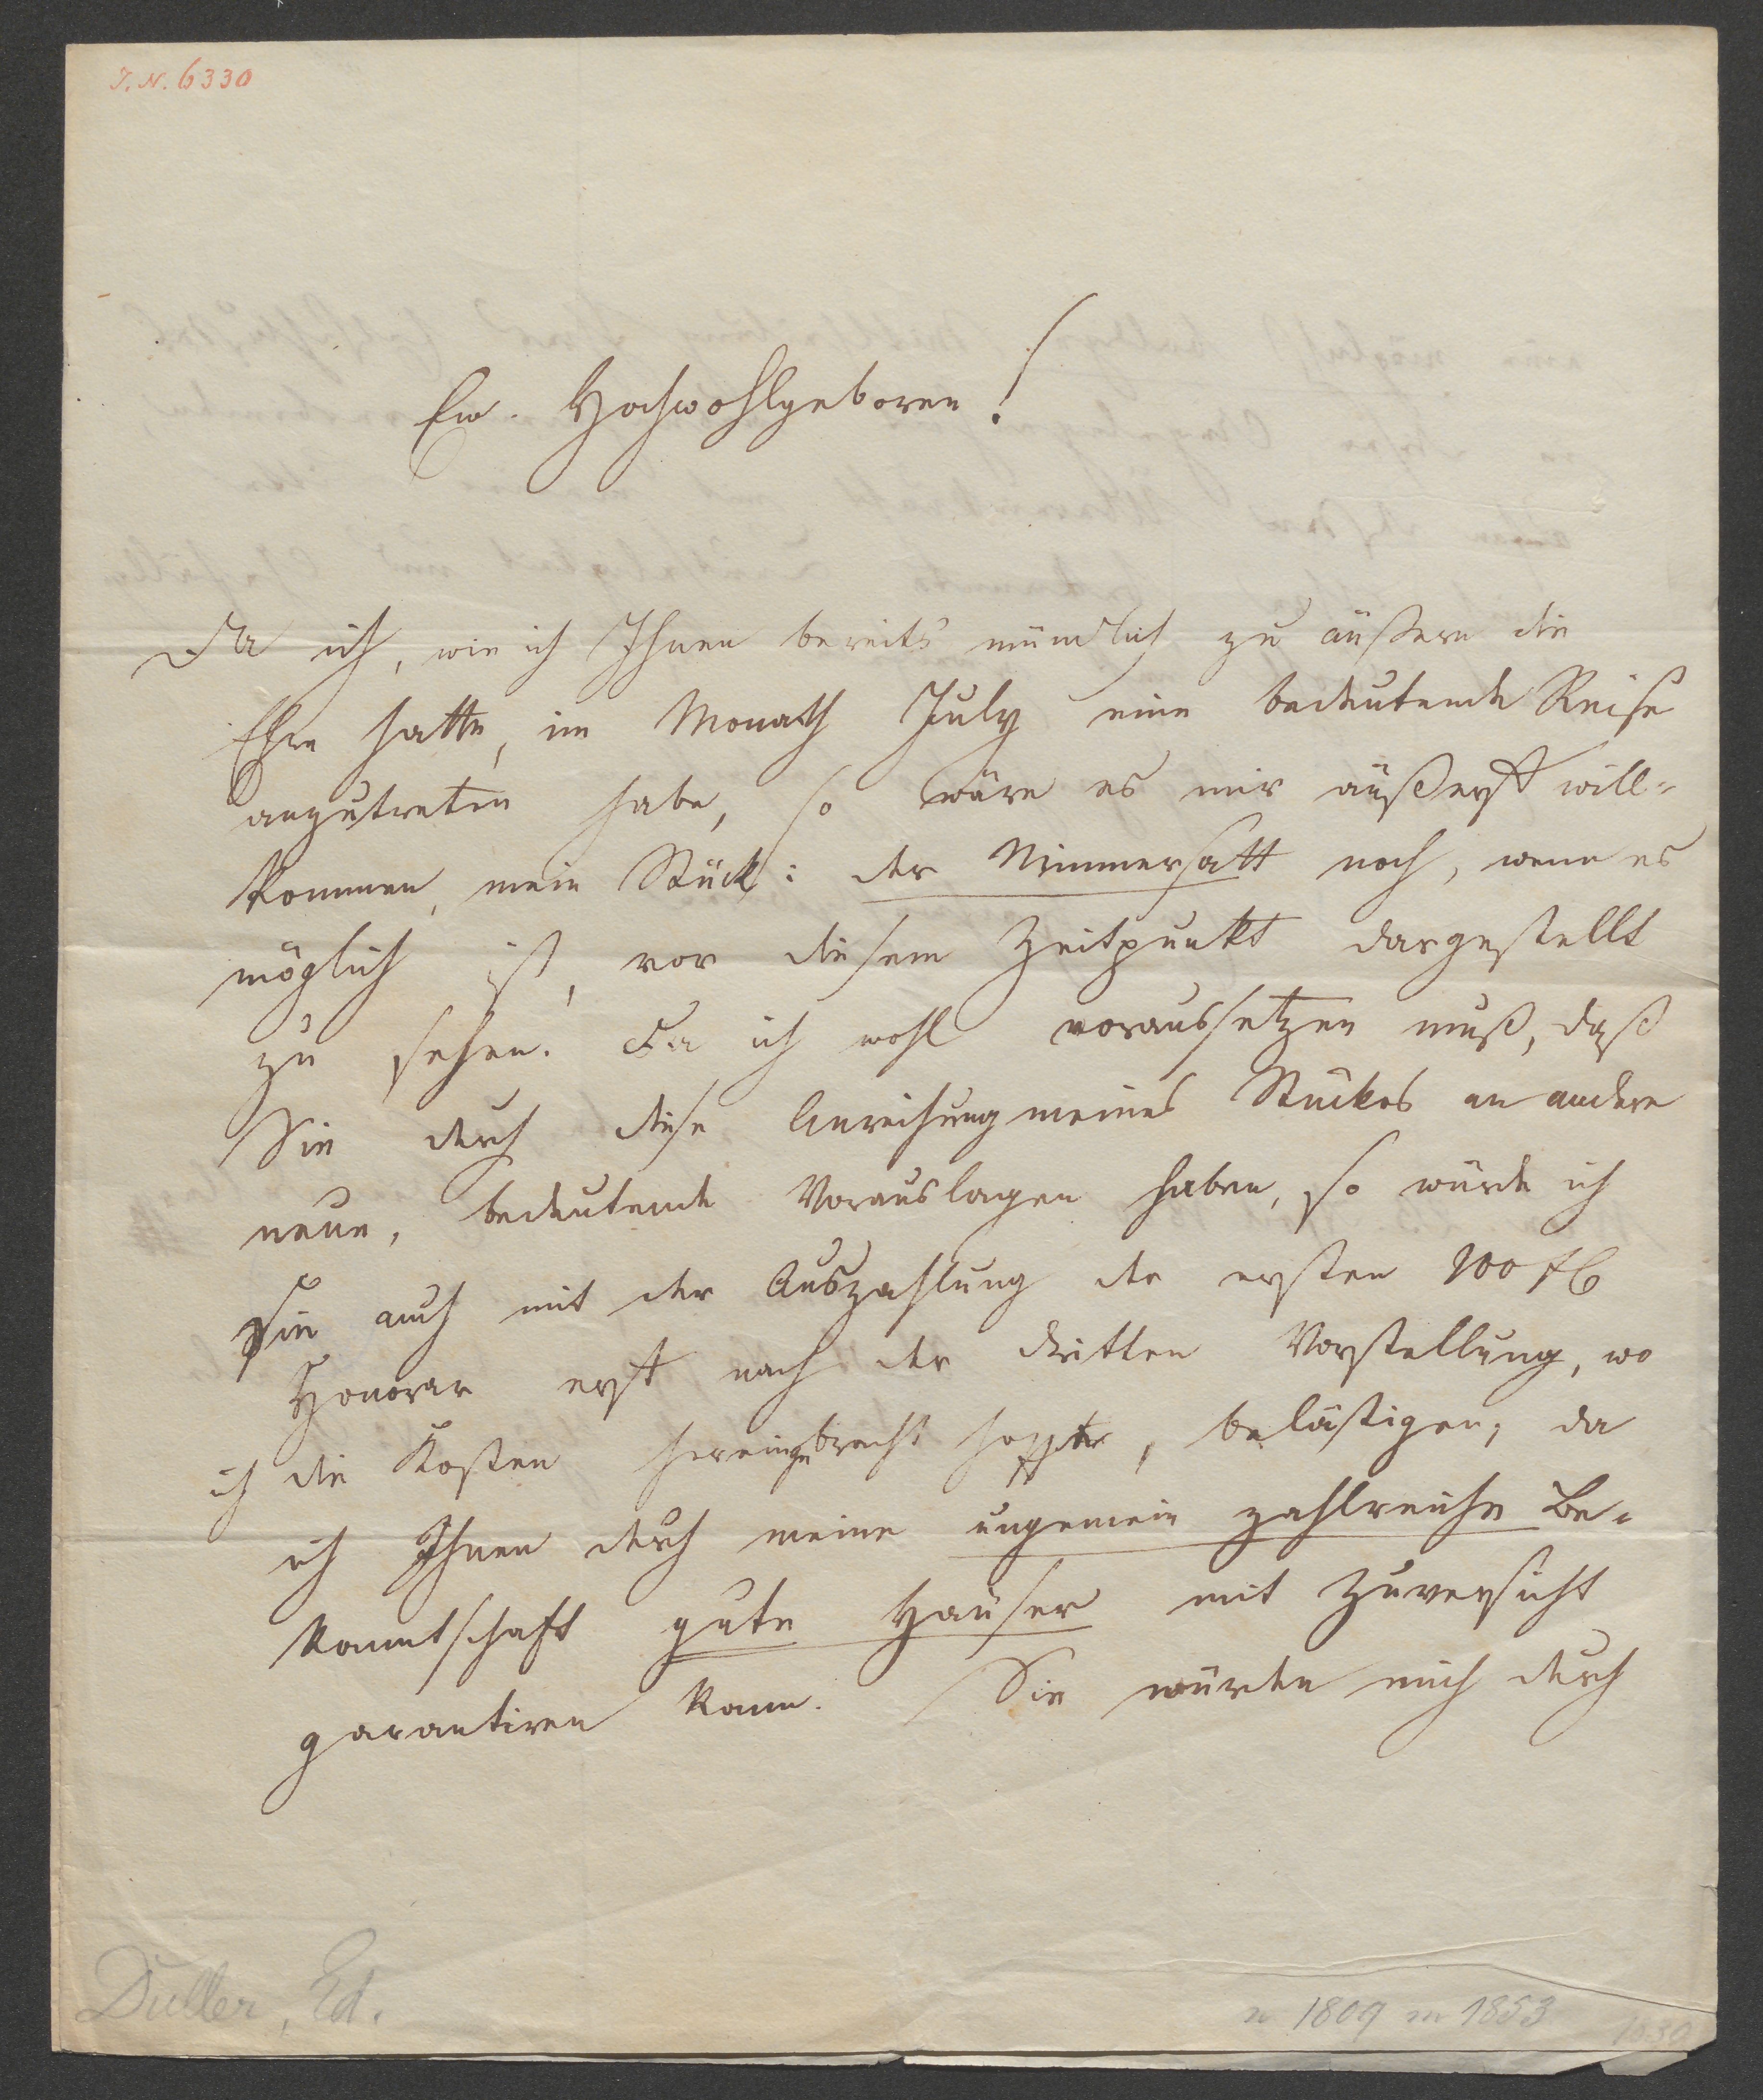 J. N. 6330
Ew. Hochwohlgeboren!
Da ich, wie ich Ihnen bereits mündlich zu äußern die
Ehre hatte, im Monath July eine bedeutende Reise
anzutreten habe, so wäre es mir äußerst will-
kommen, mein Stück: der Nimmersatt noch, wenn es
möglich ist, vor diesem Zeitpunkt dargestellt
zu sehen. Da ich wohl voraussetzen muß, daß
Sie durch diese Anreihung meines Stückes an andere
neue, bedeutende Vorauslagen haben, so würde ich
Sie auch mit der Auszahlung der ersten 100 fl
Honorar erst nach der dritten Vorstellung, wo
ich die Kosten hereingebracht hoffte, belästigen; da
ich Ihnen durch meine ungemein zahlreiche Be-
kanntschaft gute Häuser mit Zuversicht
garantiren kann. Sie würden mich durch
Duller, Ed.
n 1809 m 1853
1830